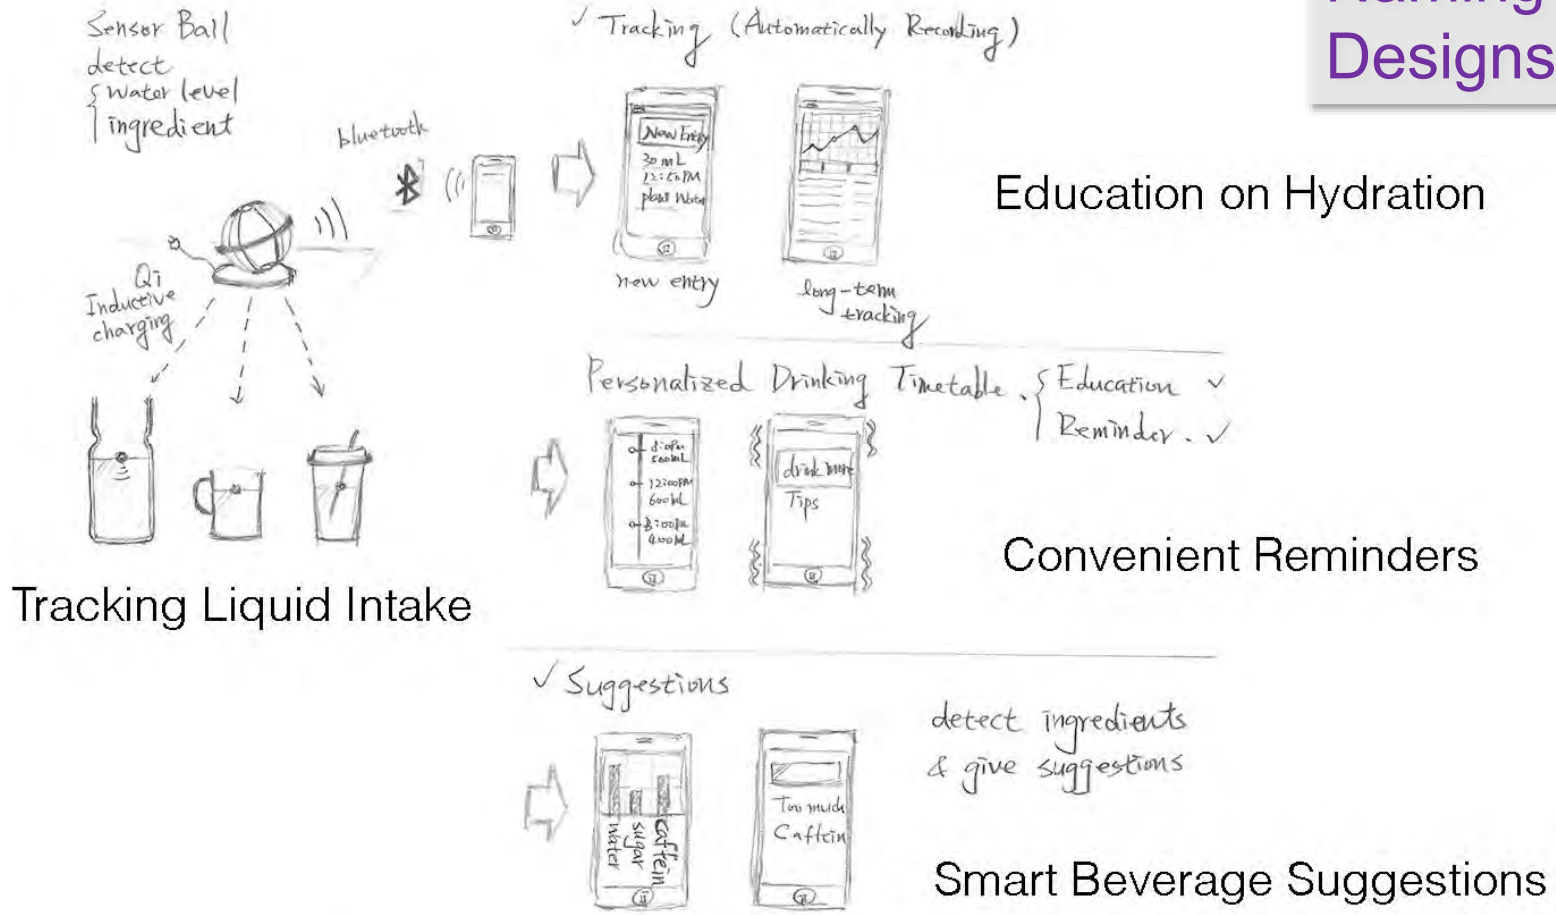 Sensor Ball
detect
water level
ingredient
bluetooth
Qi
Inductive
charging
Tracking Liquid Intake
✓ Tracking (Automatically Recording)
New Entry
30 mL
12:50 PM
new entry
long-term
tracking
Designs
Education on Hydration
Personalized Drinking Timetable.
Education ✓
Reminder. ✓
12:00PM
600 mL
drink more
Tips
Convenient Reminders
✓ Suggestions
water
sugar
caffein
Too much
Caffein
detect ingredients
& give suggestions
Smart Beverage Suggestions